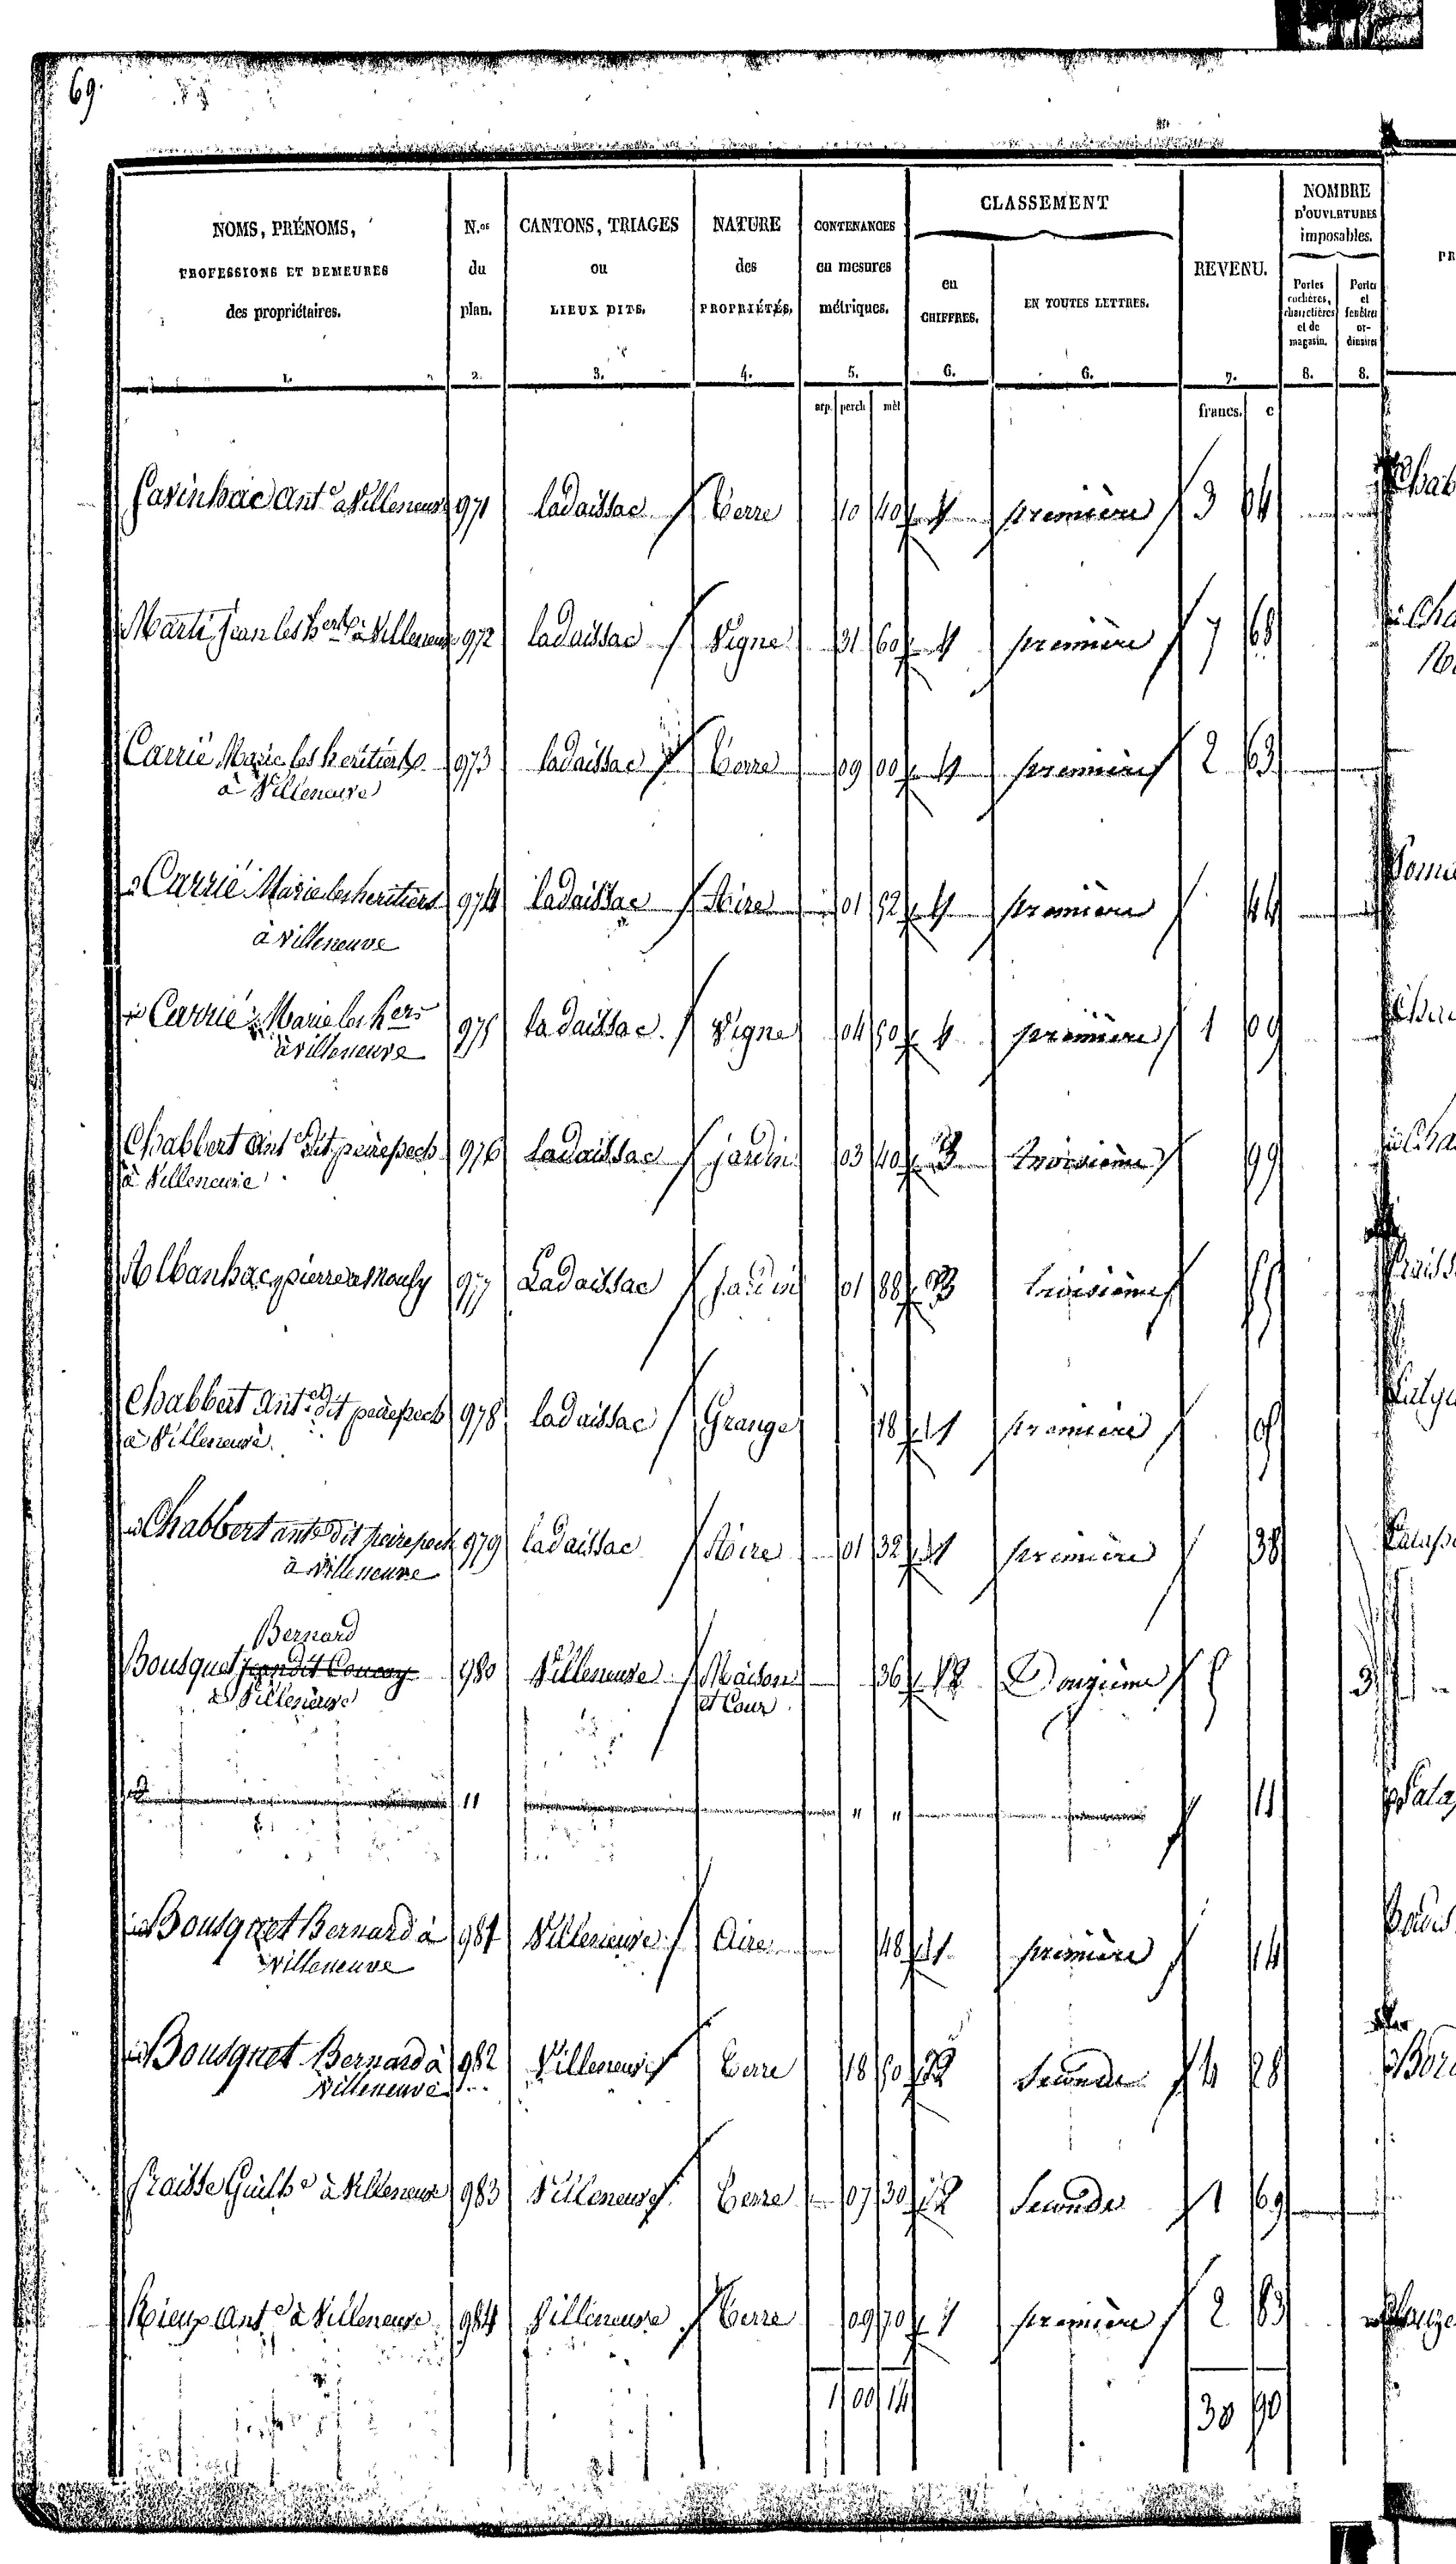 69.
NOMS, PRÉNOMS, PROFESSIONS ET DEMEURES des propriétaires. 1.
N.os du plan. 2.
CANTONS, TRIAGES ou LIEUX DITS. 3.
NATURE des PROPRIÉTÉS. 4.
CONTENANCES en mesures métriques. 5.
CLASSEMENT
en CHIFFRES. 6.
EN TOUTES LETTRES. 6.
REVENU. 7.
NOMBRE D'OUVERTURES imposables.
Portes cochères, charretières et de magasin. 8.
Portes et fenêtres ordinaires 8.
arp. perch. mèt francs. c
Savinhac Ant.e a Villeneuve 971 ladaissac Terre 10 40 1 première 3 04
Marti Jean les h.ers à Villeneuve 972 ladaissac Vigne 31 60 1 première 7 68
Carrié Marie les heritiers 973 ladaissac Terre 09 00 1 première 2 63
à Villeneuve
Carrié Marie les heritiers 974 ladaissac Aire 01 52 1 première 44
à Villeneuve
Carrié Marie les h.ers 975 ladaissac Vigne 04 50 1 première 1 09
à Villeneuve
Chabbert Ant.e dit peirepech 976 ladaissac jardin 03 40 3 troisième 99
à Villeneuve
Albanhac pierre a Mouly 977 Ladaissac Jardin 01 88 3 troisième 55
Chabbert Ant.e dit peirepech 978 ladaissac Grange 18 1 première 05
à Villeneuve
Chabbert ant.e dit peirepech 979 ladaissac Aire 01 32 1 première 38
à Villeneuve
Bernard
Bousquet Jean dit Coucoy 980 Villeneuve Maison 36 12 Douzième 5
à Villeneuve et Cour
id " " " 11
Bousquet Bernard à 981 Villeneuve Aire 48 1 première 14
Villeneuve
Bousquet Bernard à 982 Villeneuve Terre 18 50 2 Seconde 4 28
Villeneuve
fraisse Guilhe à Villeneuve 983 Villeneuve Terre 07 30 2 Seconde 1 69
Rieux Ant.e à Villeneuve 984 Villeneuve Terre 09 70 1 première 2 83
1 00 14 30 90